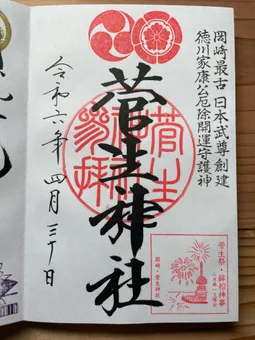 岡崎最古 日本武尊創建
徳川家康公厄除開運守護神
菅生神社
菅生
参拝
令和六年 四月三十日
菅生祭・鉾船神事
岡崎・菅生神社